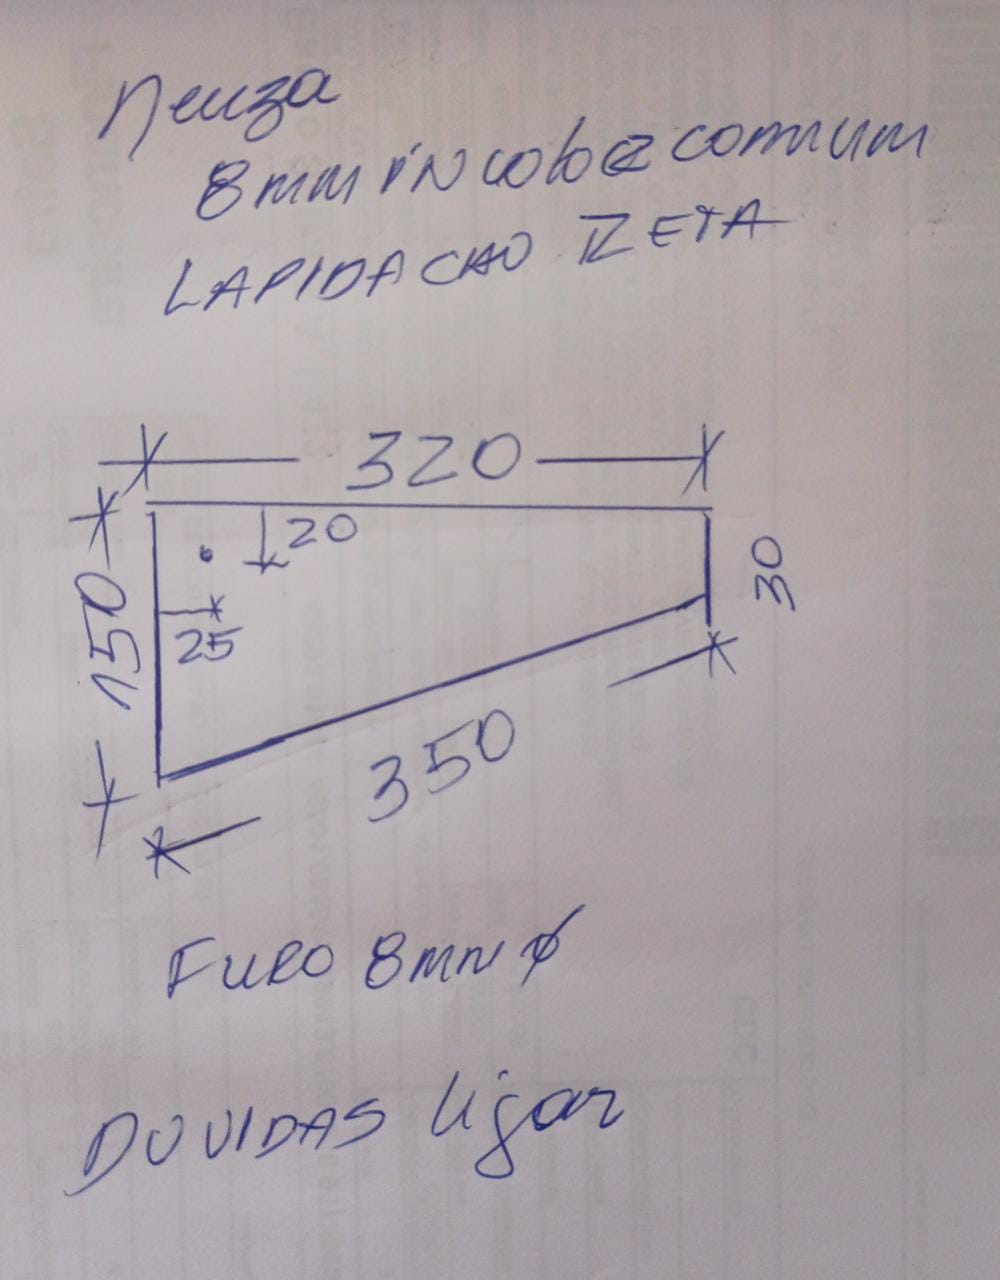 Neuza
8mm iNcoloR comum
LAPIDACAO RETA
320
20
150
30
25
350
FURO 8mm ϕ
DUVIDAS ligar